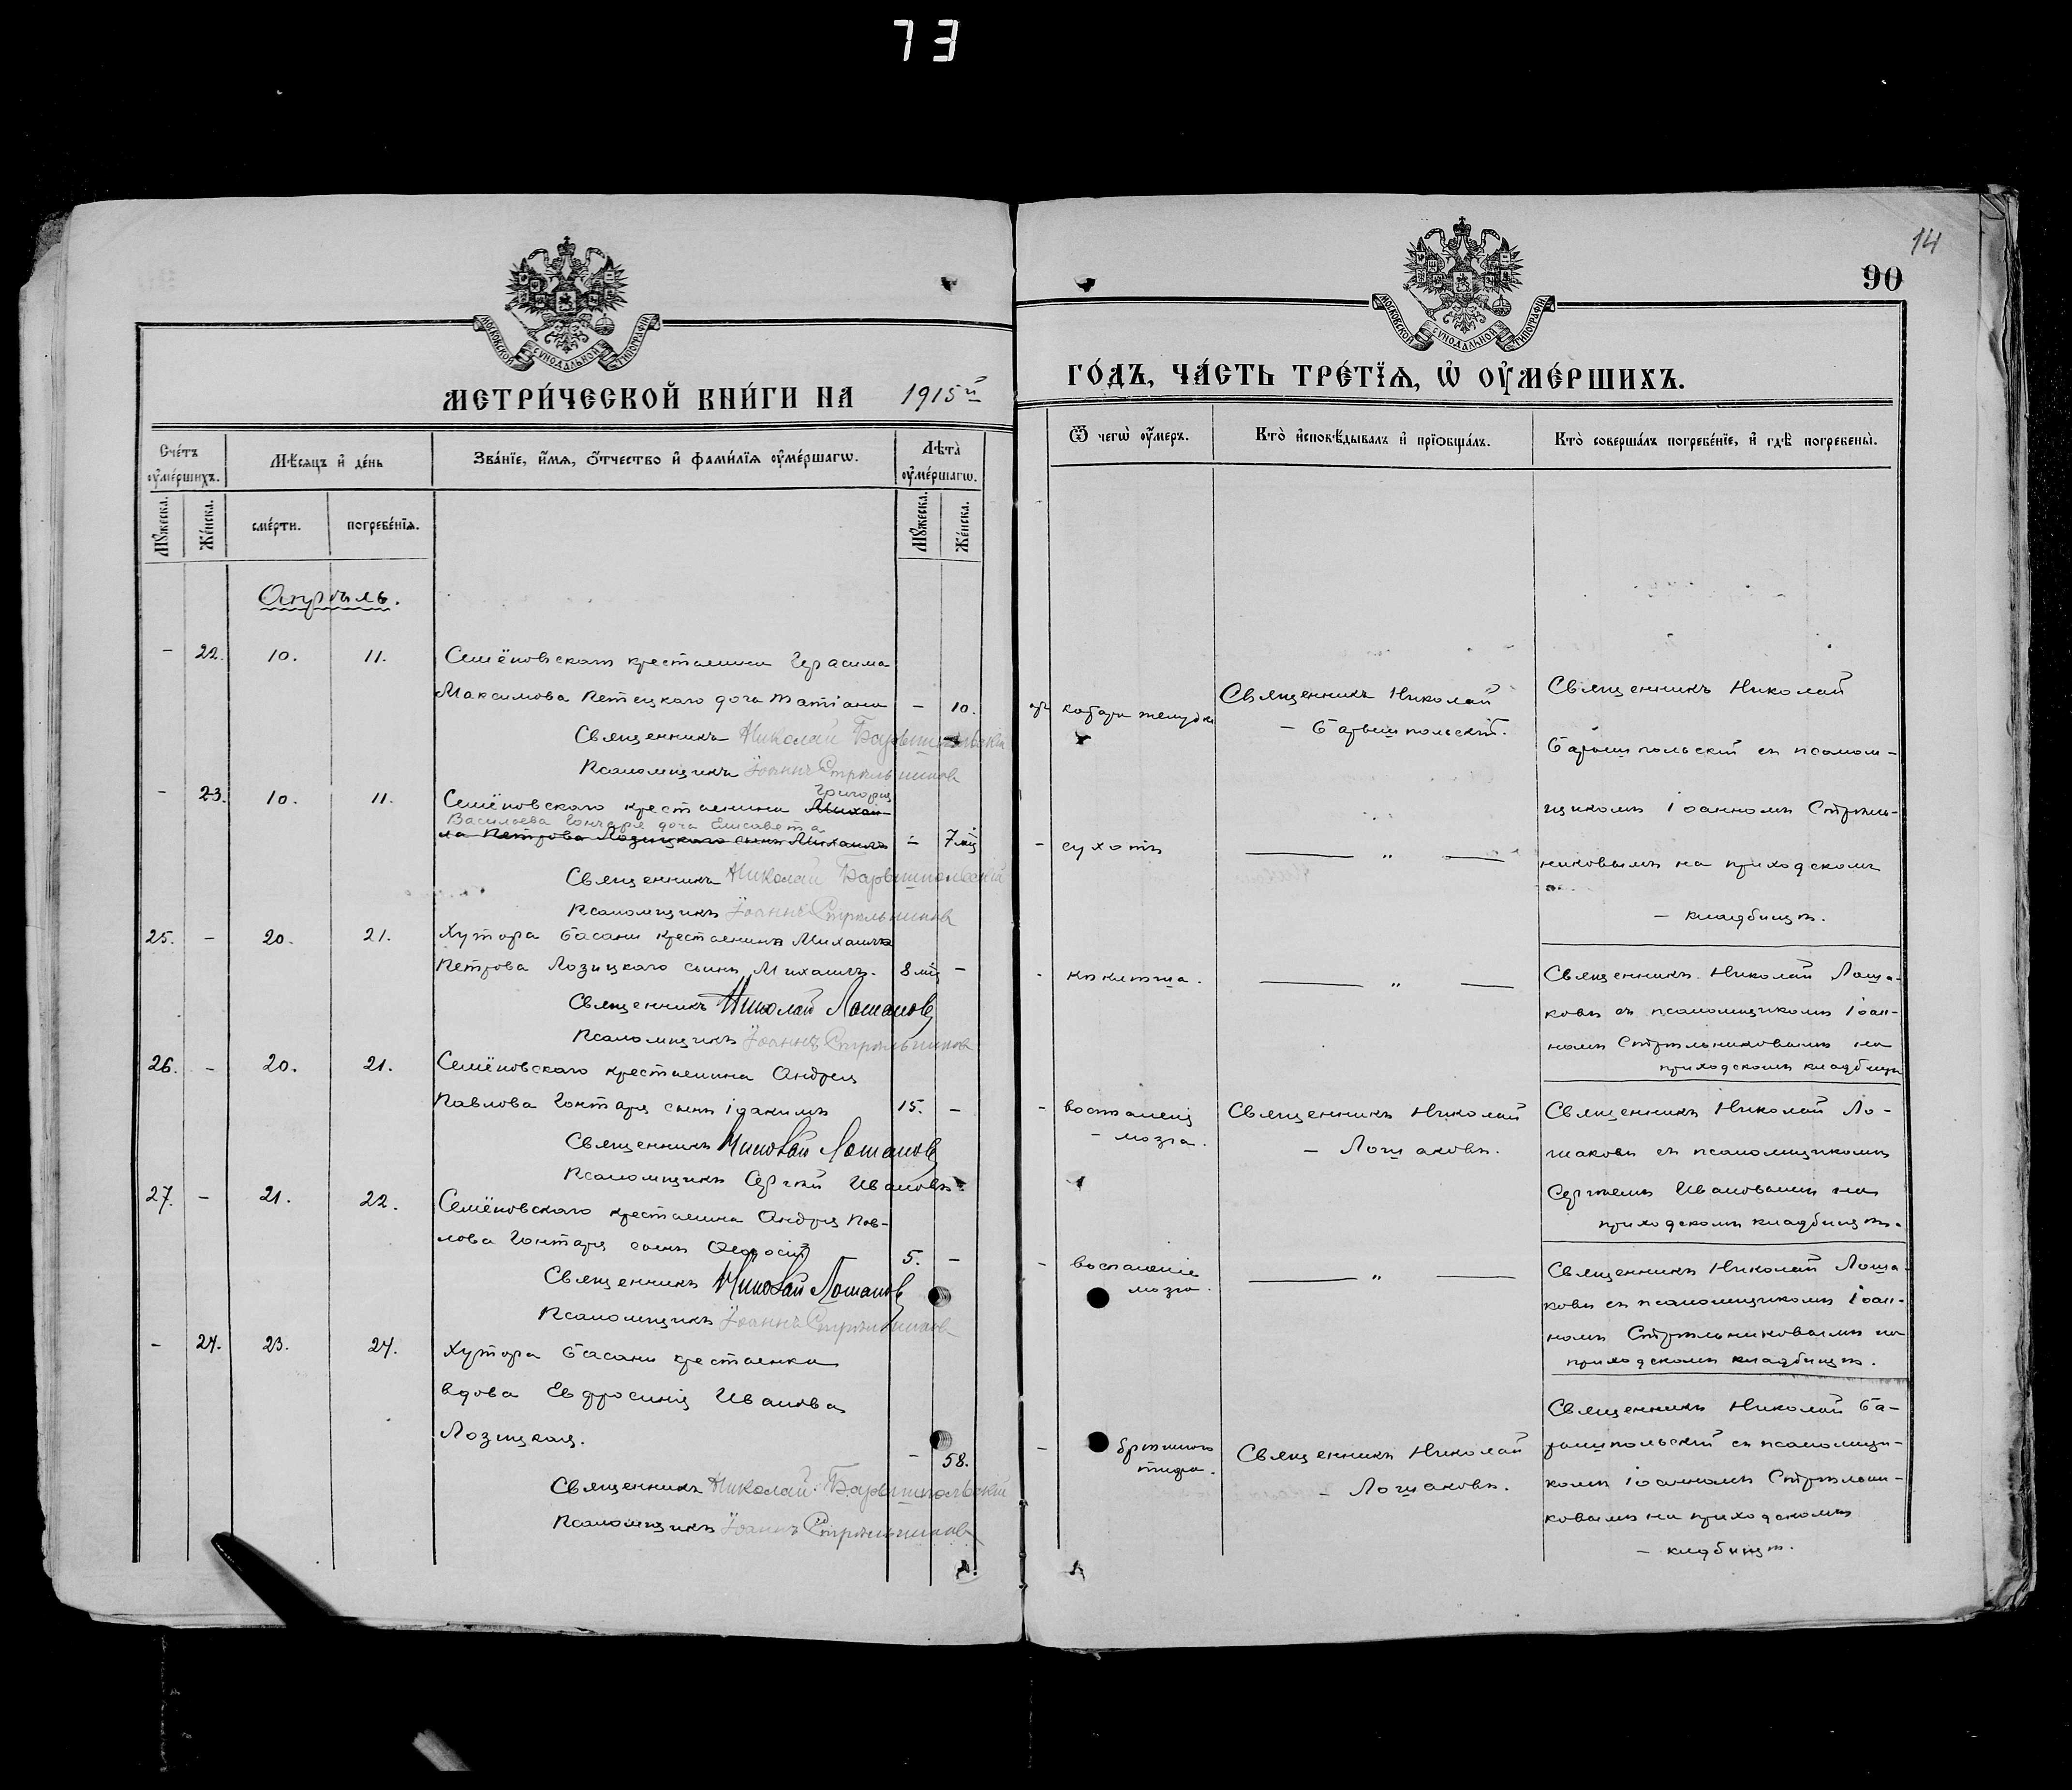 73
14
90
МОСКОВСКОЙ СѴНОДАЛЬНОЙ ТИПОГРАФІИ
МОСКОВСКОЙ СѴНОДАЛЬНОЙ ТИПОГРАФІИ
МЕТРИ́ЧЕСКОЙ КНИ́ГИ НА 1915й
ГО́ДЪ, ЧА́СТЬ ТРЕ́ТЇѦ, Ѡ҆ ОУ҆МЕ́РШИХЪ.
Сче́тъ оу҆ме́ршихъ.
Мѣ́сѧцъ и҆ де́нь
Зва́нїе, и҆́мѧ, ѻ҆́тчество и҆ фами́лїѧ оу҆ме́ршагѡ.
Лѣ́та̀ оу҆ме́ршагѡ.
Ѿ чегѡ̀ оу҆́меръ.
Кто̀ и҆сповѣ́дывалъ и҆ прїѡбща́лъ.
Кто̀ соверша́лъ погребе́нїе, и҆ гдѣ̀ погребены̀.
Мꙋ́жеска.
Же́нска.
сме́рти.
погребе́нїѧ.
Мꙋ́жеска.
Же́нска.
Апрѣль.
- 22. 10. 11. Семёновскаго крестьянина Герасима
Максимова Петецкаго дочь Татіана - 10.
Священникъ Николай Барышпольскій
Псаломщикъ Іоаннъ Стрѣльниковъ
катара желудка
Священникъ Николай
- Барышпольскій.
Священникъ Николай
Барышпольскій съ псалом-
щикомъ Іоанномъ Стрѣль-
никовымъ на приходскомъ
- кладбищѣ.
- 23. 10. 11. Семёновского крестьянина Михаи-
Григорія
Васильева Гончаря дочь Елисавета
ла Петрова Лозицкаго сынъ Михаилъ - 7 мц
Священникъ Николай Барышпольскій
Псаломщикъ Іоаннъ Стрѣльниковъ
- сухоты
— „ —
25. - 20. 21. Хутора Басани крестьянина Михаила
Петрова Лозицкаго сынъ Михаилъ. 8 мц -
Священникъ Николай Лошаковъ
Псаломщикъ Іоаннъ Стрѣльниковъ
- коклюша.
— „ —
Священникъ Николай Лоша-
ковъ съ псаломщикомъ Іоан-
номъ Стрѣльниковымъ на
приходскомъ кладбищѣ
26. - 20. 21. Семёновскаго крестьянина Андрея
Павлова Гонтаря сынъ Іоакимъ 15. -
Священникъ Николай Лошаковъ
Псаломщикъ Сергѣй Ивановъ
- воспаленія
- мозга.
Священникъ Николай
- Лошаковъ.
Священникъ Николай Ло-
шаковъ съ псаломщикомъ
Сергѣемъ Ивановымъ на
приходскомъ кладбищѣ.
27. - 21. 22. Семёновскаго крестьянина Андрея Пав-
лова Гонтаря сынъ Ѳеодосій 5. -
Священникъ Николай Лошаковъ
Псаломщикъ Іоаннъ Стрѣльниковъ
- воспаленіе
мозга.
— „ —
Священникъ Николай Лоша-
ковъ съ псаломщикомъ Іоан-
номъ Стрѣльниковымъ на
приходскомъ кладбищѣ.
- 24. 23. 24. Хутора Басани крестьянка
вдова Евфросинія Иванова
Лозицкая. - 58.
Священникъ Николай Барышпольскій
Псаломщикъ Іоаннъ Стрѣльниковъ
- брюшного
тифа.
Священникъ Николай
- Лошаковъ.
Священникъ Николай Ба-
рышпольскій съ псаломщи-
комъ Іоанномъ Стрѣльни-
ковымъ на приходскомъ
- кладбищѣ.